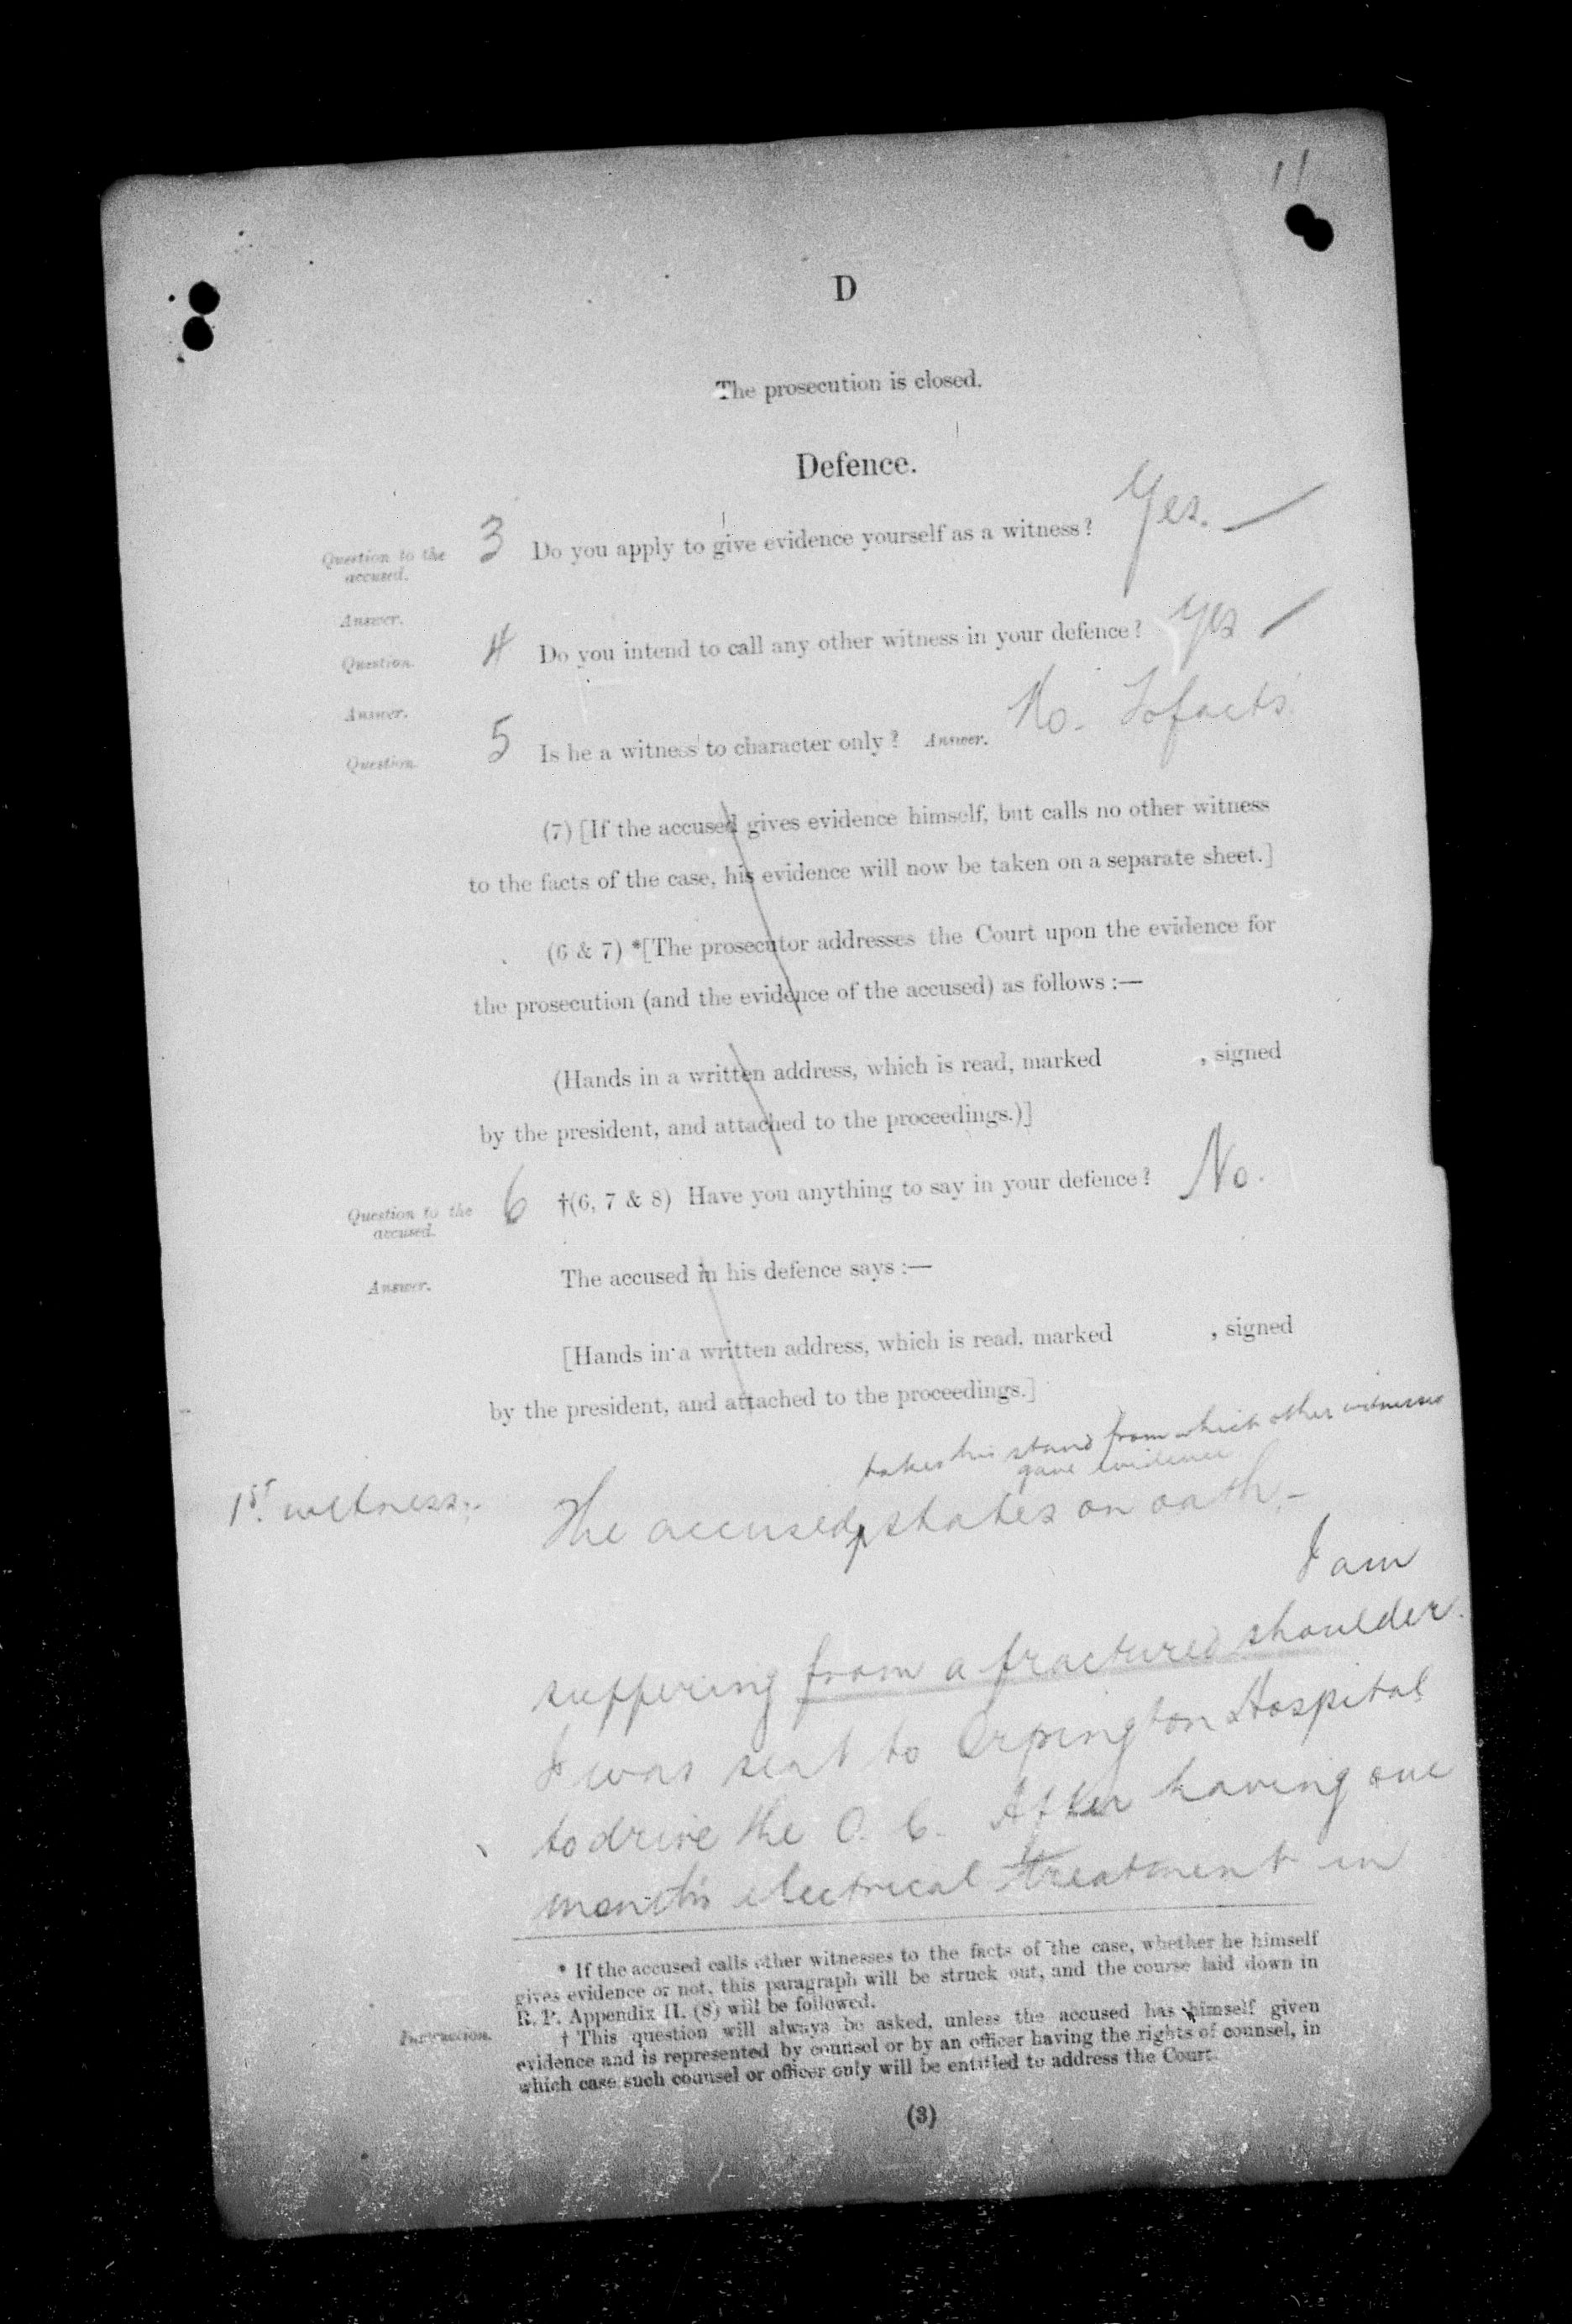 11
D
The prosecution is closed.
Defence.
Question to the accused. 3 Do you apply to give evidence yourself as a witness? Yes. —
Answer.
Question. 4 Do you intend to call any other witness in your defence? Yes —
Answer.
Question. 5 Is he a witness to character only? Answer. No. To facts.
(7) [If the accused gives evidence himself, but calls no other witness
to the facts of the case, his evidence will now be taken on a separate sheet.]
(6 & 7) *[The prosecutor addresses the Court upon the evidence for
the prosecution (and the evidence of the accused) as follows :—
(Hands in a written address, which is read, marked , signed
by the president, and attached to the proceedings.)]
Question to the accused. 6 †(6, 7 & 8) Have you anything to say in your defence? No.
Answer. The accused in his defence says :—
[Hands in a written address, which is read, marked , signed
by the president, and attached to the proceedings.]
takes his stand from which other witnesses
gave evidence
1st. witness:- The accused states on oath:-
I am
suffering from a fractured shoulder.
I was sent to Orpington Hospital
to drive the O. C. After having one
month's electrical treatment in
* If the accused calls other witnesses to the facts of the case, whether he himself
gives evidence or not, this paragraph will be struck out, and the course laid down in
R. P. Appendix II. (8) will be followed.
Instruction. † This question will always be asked, unless the accused has himself given
evidence and is represented by counsel or by an officer having the rights of counsel, in
which case such counsel or officer only will be entitled to address the Court.
(3)